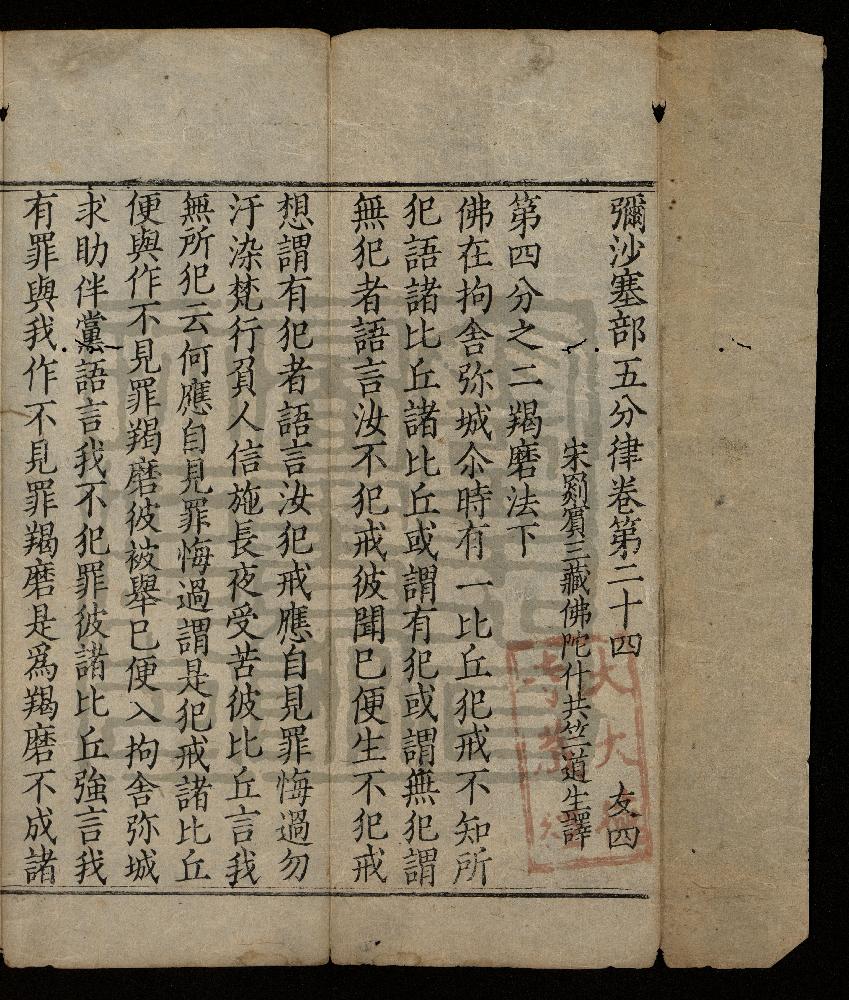 彌沙塞部五分律卷第二十四 友四
宋罽賓三藏佛陀什共竺道生譯
第四分之二羯磨法下
佛在拘舍弥城尒時有一比丘犯戒不知所
犯語諸比丘諸比丘或謂有犯或謂無犯謂
無犯者語言汝不犯戒彼聞已便生不犯戒
想謂有犯者語言汝犯戒應自見罪悔過勿
汙染梵行負人信施長夜受苦彼比丘言我
無所犯云何應自見罪悔過謂是犯戒諸比丘
便與作不見罪羯磨彼被舉已便入拘舍弥城
求助伴黨語言我不犯罪彼諸比丘強言我
有罪與我作不見罪羯磨是爲羯磨不成諸